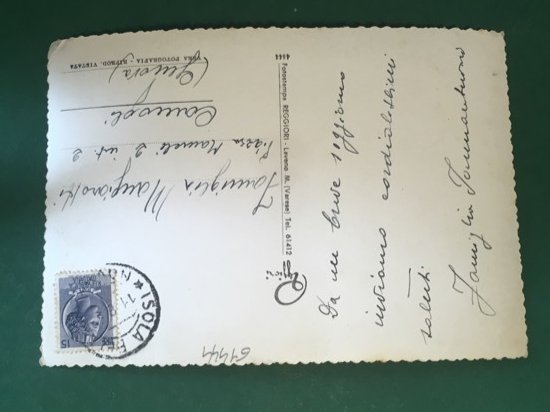 Da un breve soggiorno
inviamo cordialissimi
saluti
Famiglia
Fotostampa REGGIORI - Laveno M. (Varese) Tel. 61412
VERA FOTOGRAFIA - RIPROD. VIETATA
Famiglia
Piazza Mameli 2 int. 2
Camogli
(Genova)
15
ISOLA
6144